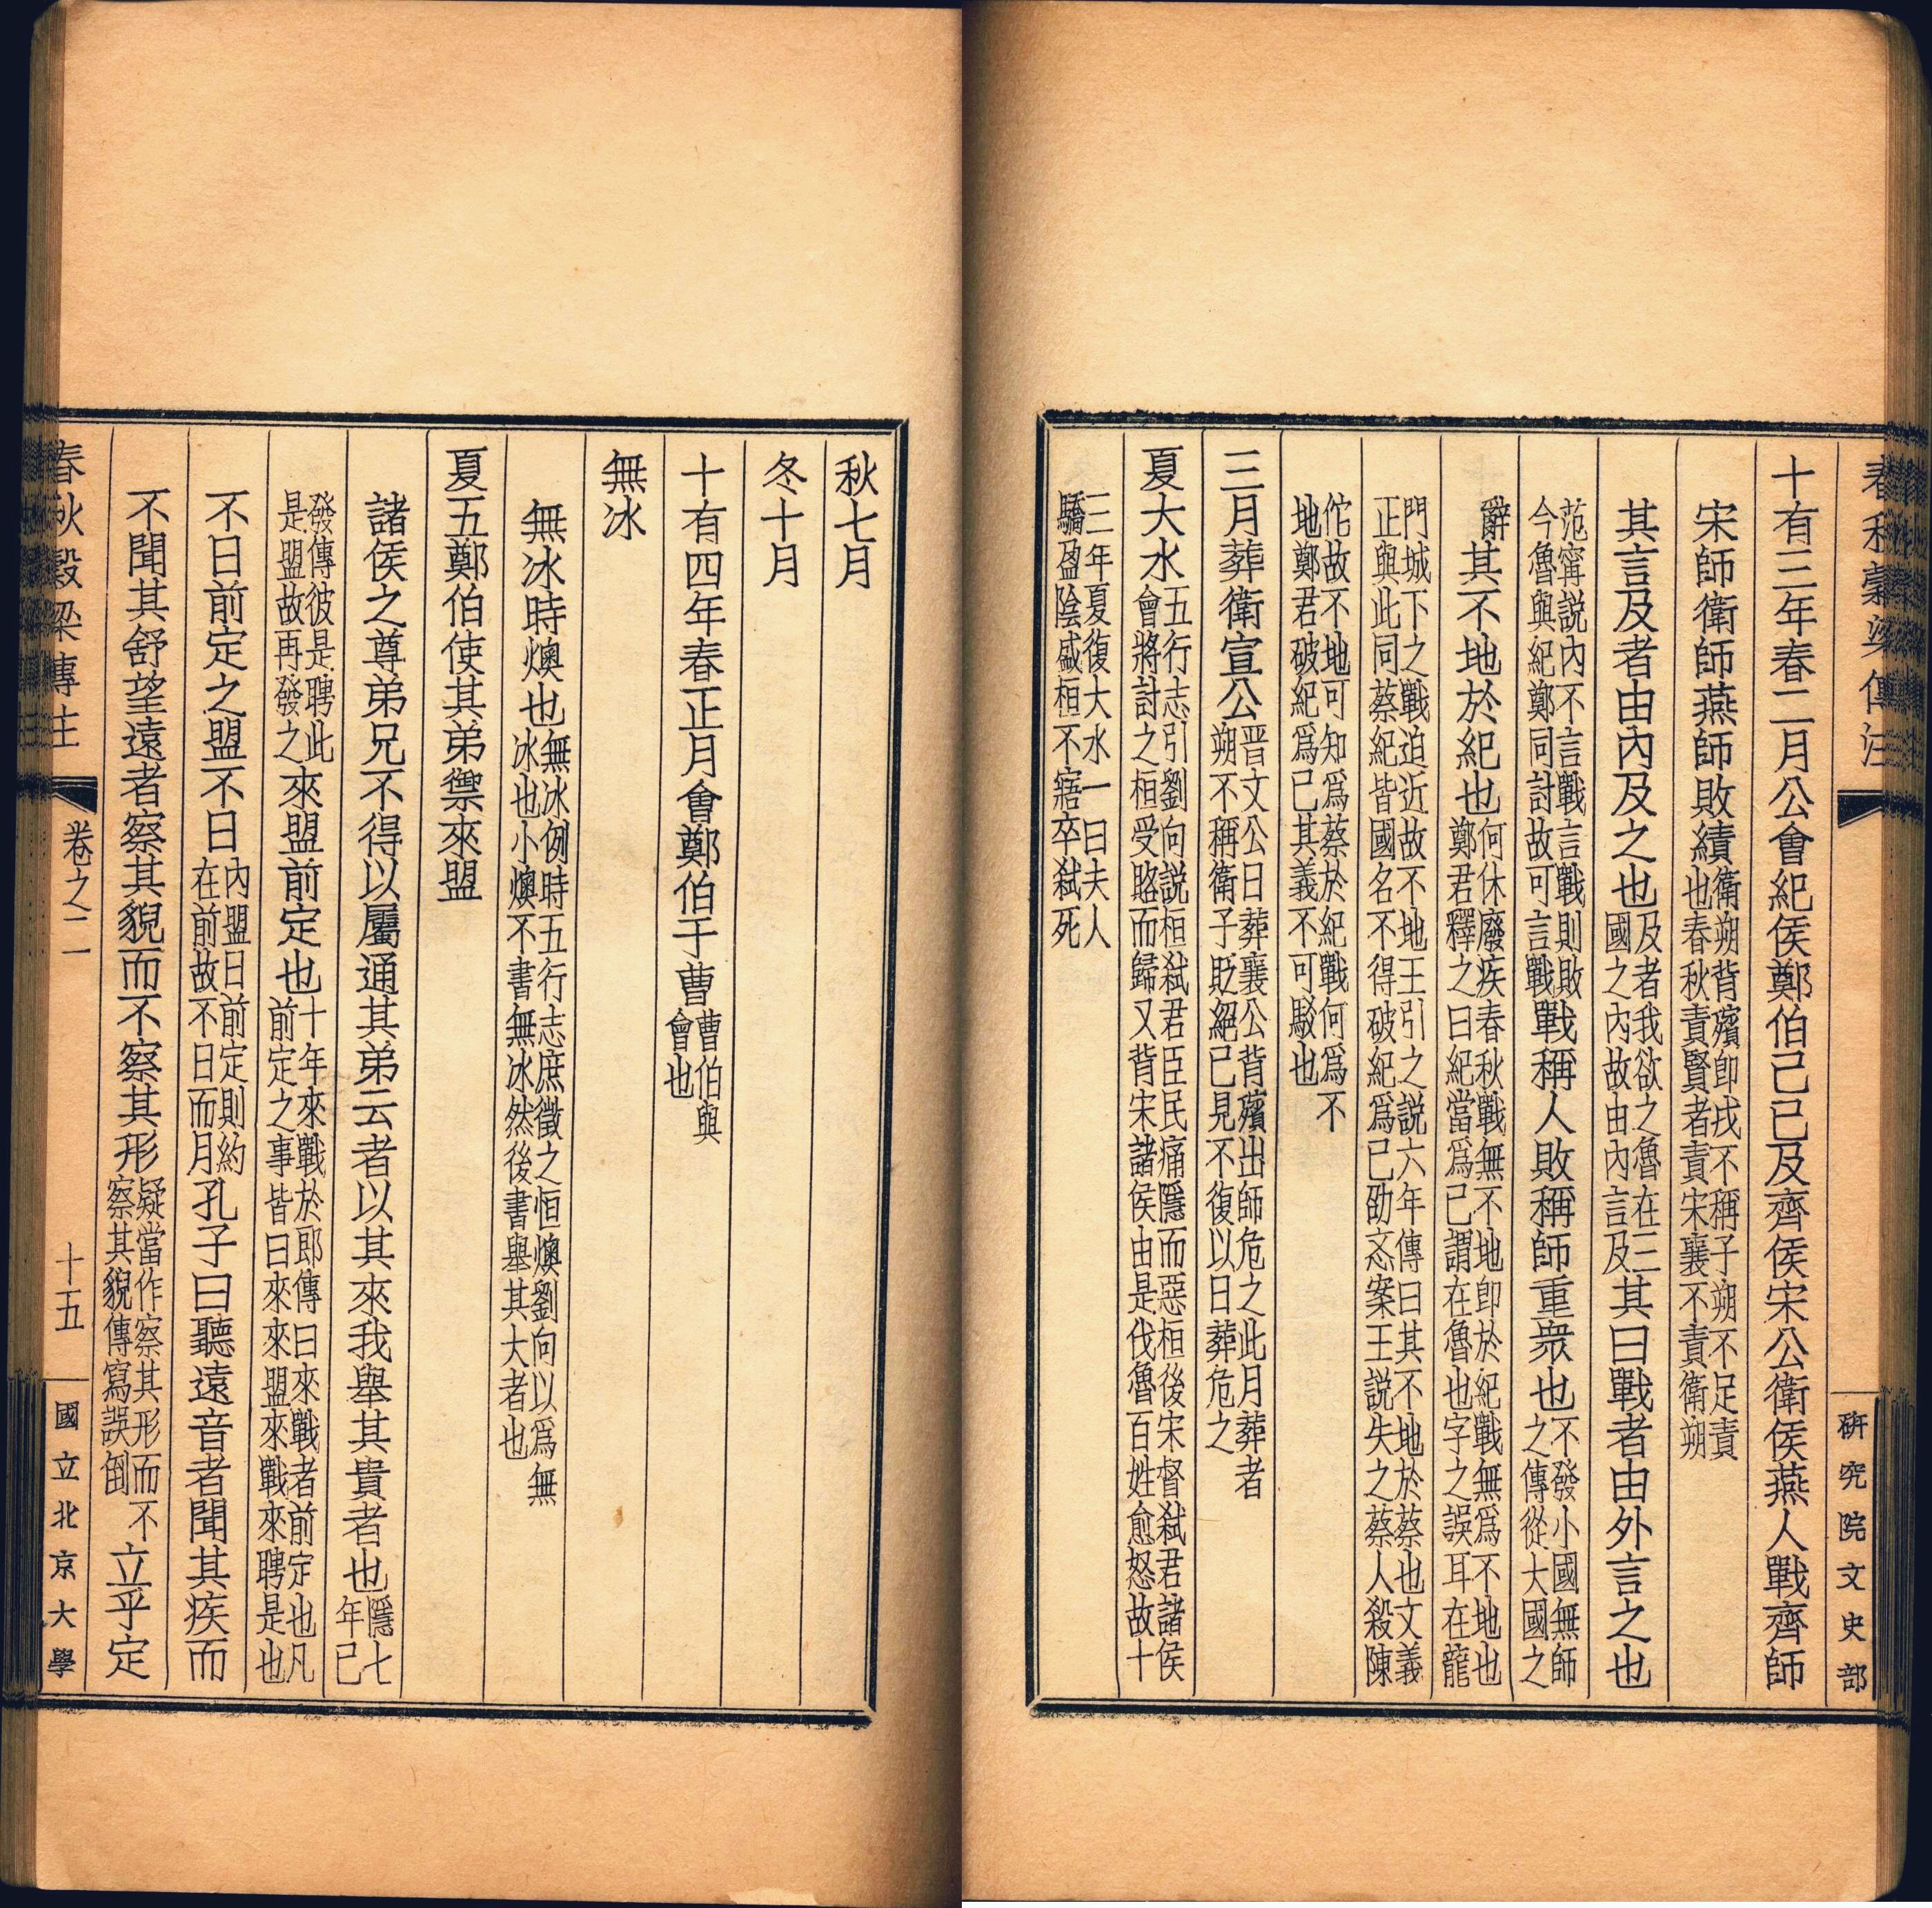 春秋穀梁傳注
研究院文史部
十有三年春二月公會紀侯鄭伯己巳及齊侯宋公衛侯燕人戰齊師
宋師衛師燕師敗績衛朔背殯卽戎不稱子朔不足責也春秋責賢者責宋襄不責衛朔
其言及者由內及之也及者我欲之魯在三國之內故由內言及其曰戰者由外言之也
范甯説內不言戰言戰則敗今魯與紀鄭同討故可言戰戰稱人敗稱師重衆也不發小國無師之傳從大國之
辭其不地於紀也何休廢疾春秋戰無不地卽於紀戰無爲不地也鄭君釋之曰紀當爲己謂在魯也字之誤耳在龍
門城下之戰迫近故不地王引之説六年傳曰其不地於蔡也文義正與此同蔡紀皆國名不得破紀爲己劭忞案王説失之蔡人殺陳
佗故不地可知爲蔡於紀戰何爲不地鄭君破紀爲己其義不可駁也
三月葬衛宣公晋文公日葬襄公背殯出師危之此月葬者朔不稱衛子貶絕已見不復以日葬危之
夏大水五行志引劉向説桓弑君臣民痛隱而惡桓後宋督弑君諸侯會將討之桓受賂而歸又背宋諸侯由是伐魯百姓愈怒故十
三年夏復大水一曰夫人驕盈陰盛桓不寤卒弑死
秋七月
冬十月
十有四年春正月會鄭伯于曹曹伯與會也
無冰
無冰時燠也無冰例時五行志庶徵之恒燠劉向以爲無冰也小燠不書無冰然後書舉其大者也
夏五鄭伯使其弟禦來盟
諸侯之尊弟兄不得以屬通其弟云者以其來我舉其貴者也隱七年已
發傳彼是聘此是盟故再發之來盟前定也十年來戰於郎傳曰來戰者前定也凡前定之事皆曰來來盟來戰來聘是也
不日前定之盟不日內盟日前定則約在前故不日而月孔子曰聽遠音者聞其疾而
不聞其舒望遠者察其貌而不察其形疑當作察其形而不察其貌傳寫誤倒立乎定
春秋穀梁傳注
卷之二
十五
國立北京大學